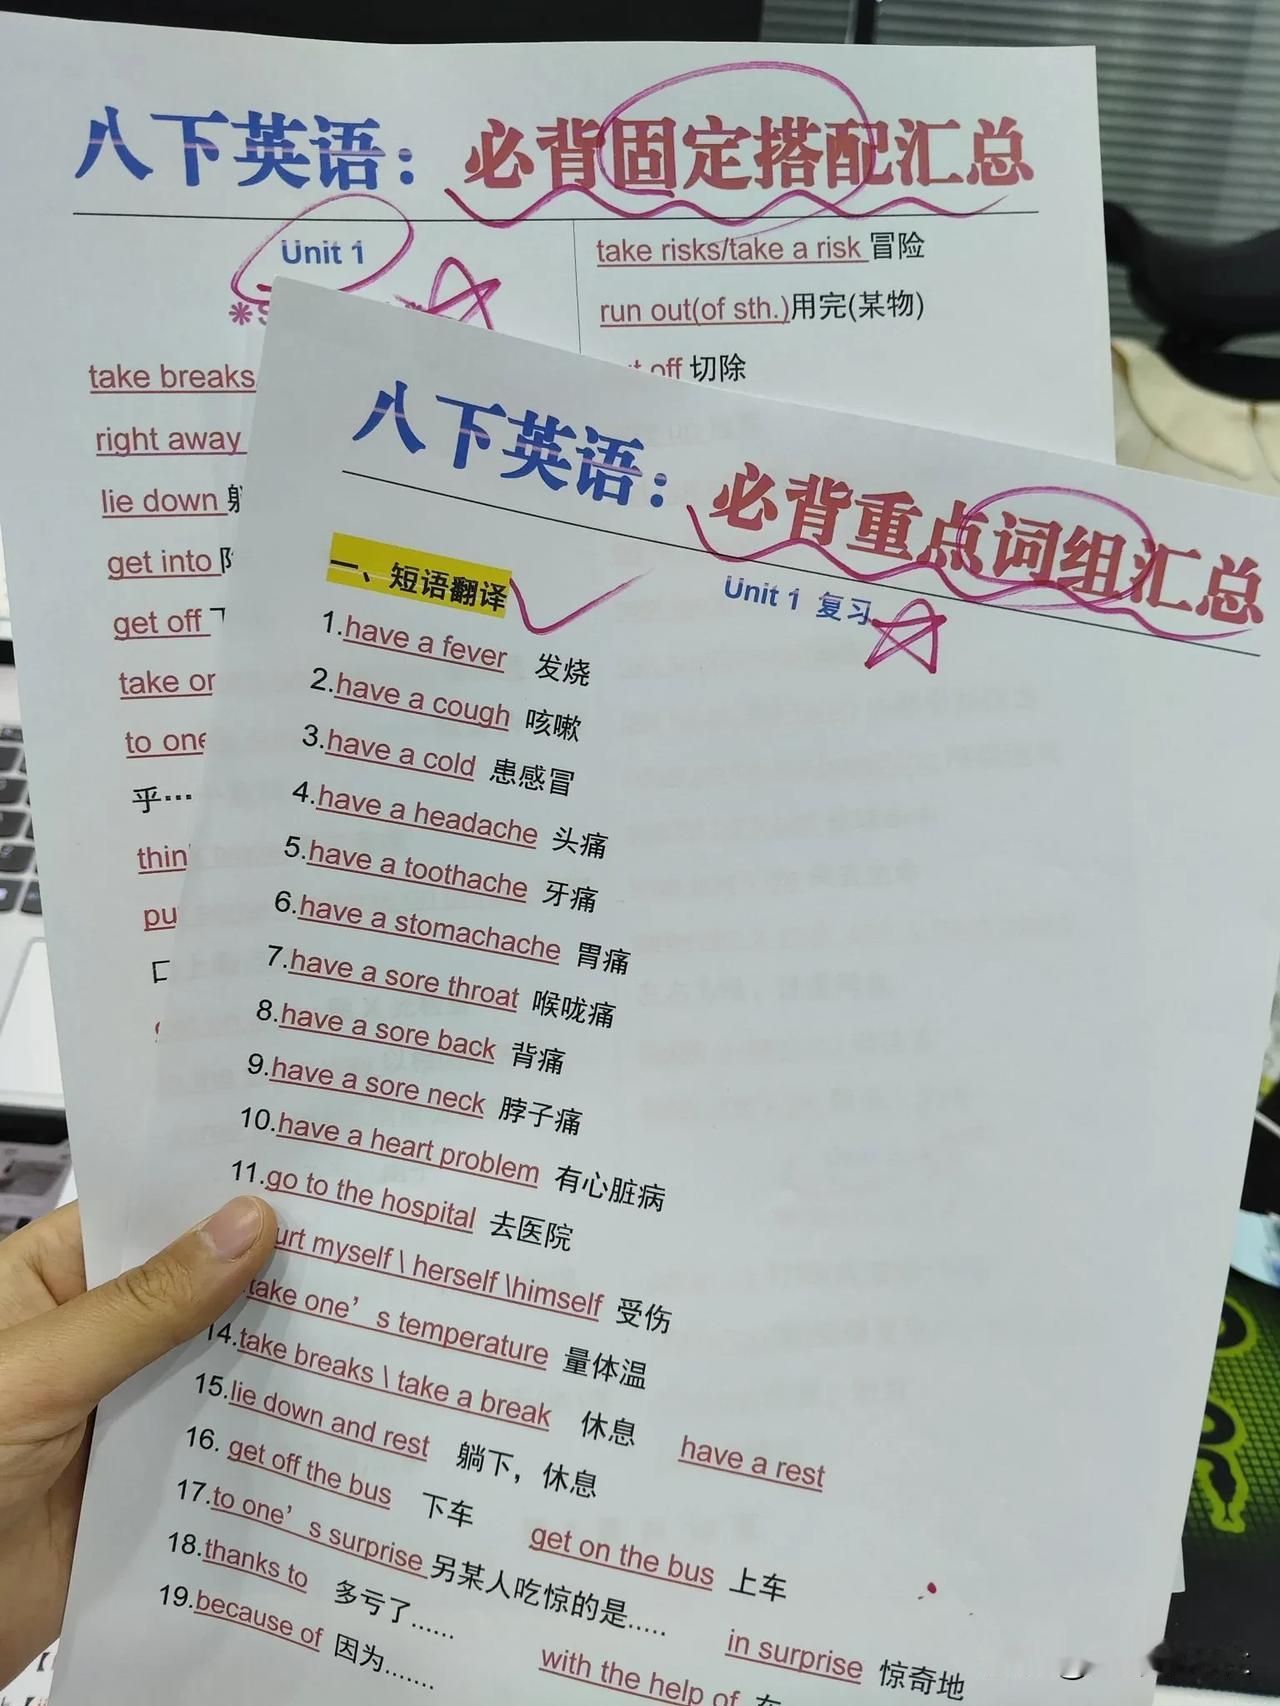 八下英语：必背固定搭配汇总
Unit 1
take breaks
right away
lie down 躺
get into
get off 下
take
to one
乎…
take risks/take a risk 冒险
run out(of sth.)用完(某物)
off 切除
八下英语：必背重点词组汇总
Unit 1 复习
一、短语翻译
1.have a fever 发烧
2.have a cough 咳嗽
3.have a cold 患感冒
4.have a headache 头痛
5.have a toothache 牙痛
6.have a stomachache 胃痛
7.have a sore throat 喉咙痛
8.have a sore back 背痛
9.have a sore neck 脖子痛
10.have a heart problem 有心脏病
11.go to the hospital 去医院
myself \ herself \himself 受伤
take one’s temperature 量体温
14.take breaks \ take a break 休息 have a rest
15.lie down and rest 躺下，休息
16. get off the bus 下车 get on the bus 上车
17.to one’s surprise 另某人吃惊的是...... in surprise 惊奇地
18.thanks to 多亏了...... with the help of 在
19.because of 因为.......